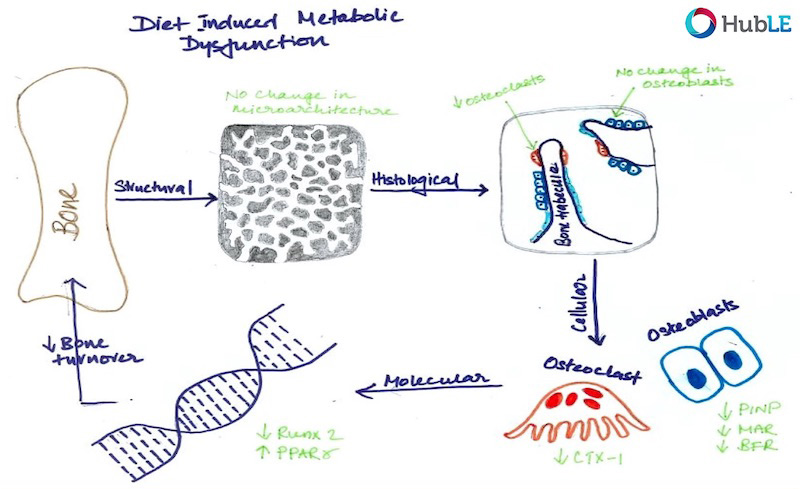 Diet Induced Metabolic
Dysfunction
HubLE
No change in
microarchitecture
↓ Osteoclasts
No change in
Osteoblasts
Bone
Structural
Histological
Bone trabeculae
Cellular
Osteoblasts
Osteoclast
↓ PINP
↓ MAR
↓ BFR
↓ CTX-1
Molecular
↓ Runx 2
↑ PPARγ
↓ Bone
turnover